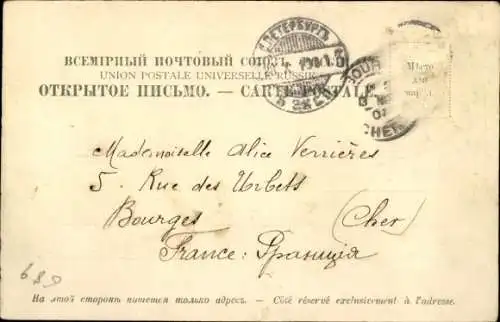 ВСЕМІРНЫЙ ПОЧТОВЫЙ СОЮЗЪ.
UNION POSTALE UNIVERSELLE RUSSIE.
ОТКРЫТОЕ ПИСЬМО. — CARTE POSTALE.
Мѣсто
для
марки.
Mademoiselle Alice Verrières
5. Rue des Urbets
Bourges (Cher)
France: Франція
689
На этой сторонѣ пишется только адресъ. — Côté réservé exclusivement à l'adresse.